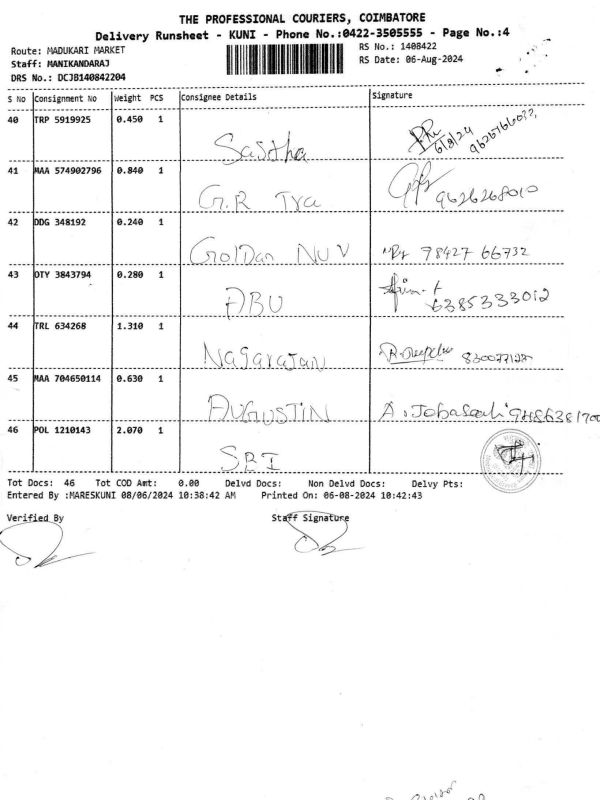 THE PROFESSIONAL COURIERS, COIMBATORE
Delivery Runsheet - KUNI - Phone No.:0422-3505555 - Page No.:4
Route: MADUKARI MARKET RS No.: 1408422
Staff: MANIKANDARAJ RS Date: 06-Aug-2024
DRS No.: DCJB140842204
S No Consignment No Weight PCS Consignee Details Signature
40 TRP 5919925 0.450 1
Sastha 6/8/24
41 MAA 574902796 0.840 1
G.R 9626268010
42 DDG 348192 0.240 1
GolDan NUV 98427 66732
43 OTY 3843794 0.280 1
ABU 6385333012
44 TRL 634268 1.310 1
Nagarajan
45 MAA 704650114 0.630 1
AUGUSTIN
46 POL 1210143 2.070 1
SBI
Tot Docs: 46 Tot COD Amt: 0.00 Delvd Docs: Non Delvd Docs: Delvy Pts:
Entered By :MARESKUNI 08/06/2024 10:38:42 AM Printed On: 06-08-2024 10:42:43
Verified By Staff Signature